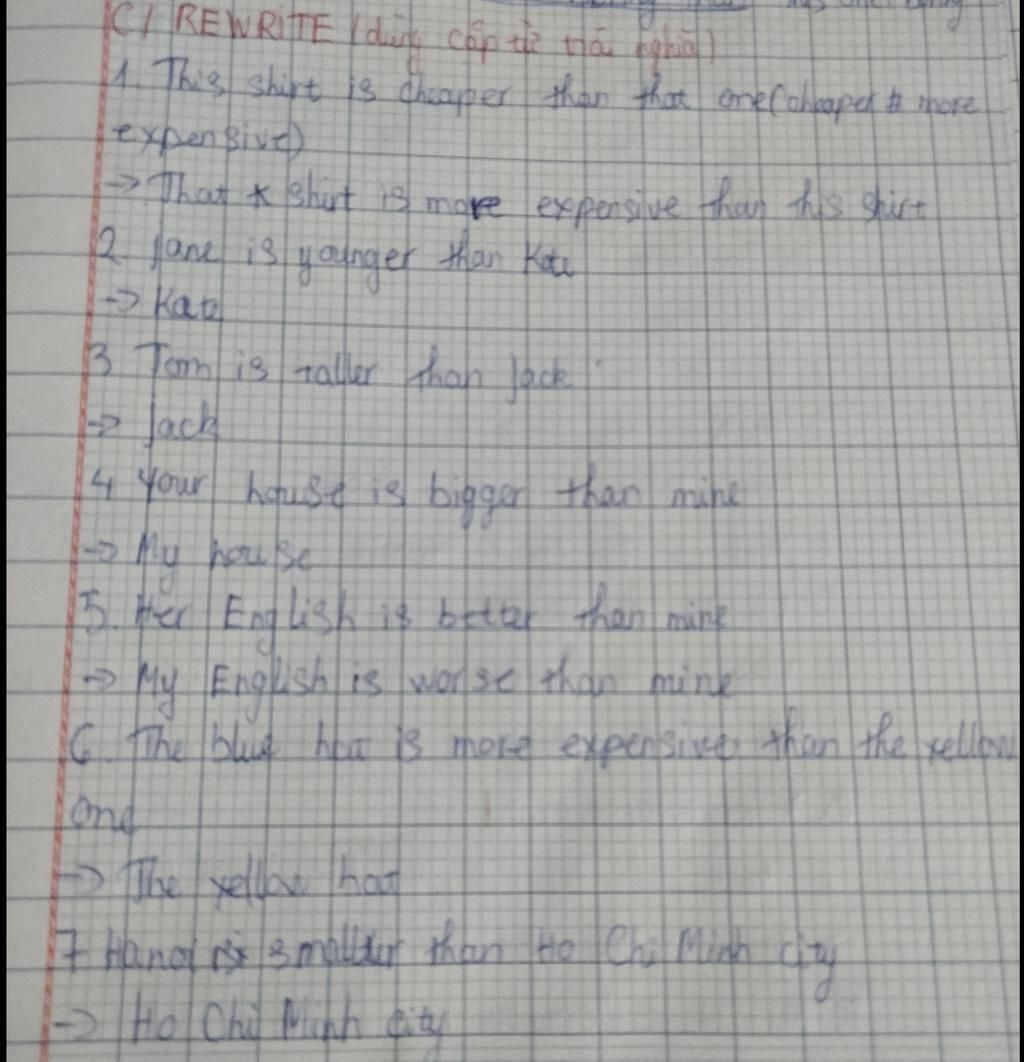 C/ REWRITE (dùng cặp từ trái nghĩa)
1. This shirt is cheaper than that one (cheaper ≠ more
expensive)
-> That shirt is more expensive than this shirt
2 Jane is younger than Kate
-> Kate
3 Tom is taller than Jack
-> Jack
4 Your house is bigger than mine
-> My house
5. Her English is better than mine
-> My English is worse than mine
6. The blue hat is more expensive than the yellow
one
-> The yellow hat
7 Hanoi is smaller than Ho Chi Minh city
-> Ho Chi Minh city